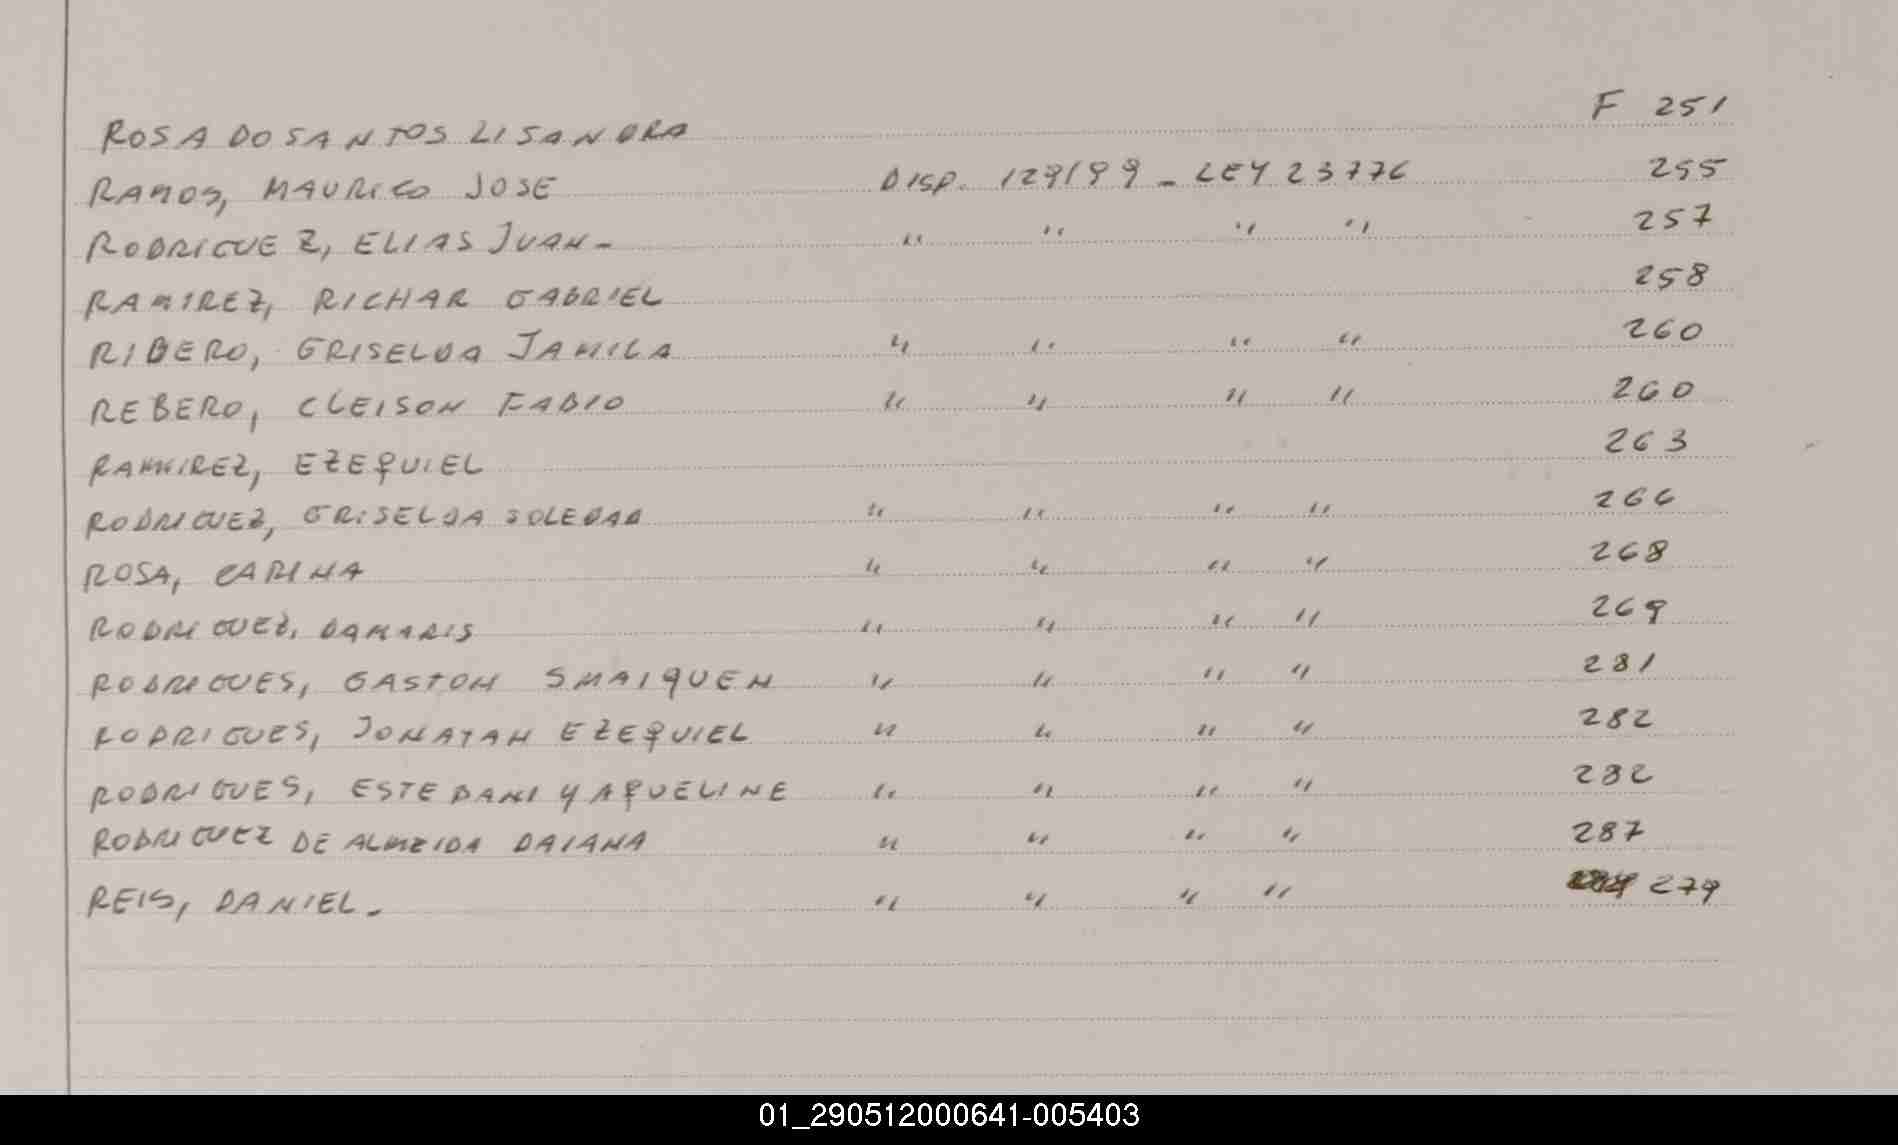 ROSA DOSANTOS LISANDRA F 251
RAMOS, MAURICO JOSE DISP. 129/99 - LEY 23776 255
RODRIGUEZ, ELIAS JUAN- " " " " 257
RAMIREZ, RICHAR GABRIEL 258
RIBERO, GRISELDA JAMILA " " " " 260
REBERO, CLEISON FABIO " " " " 260
RAMIREZ, EZEQUIEL 263
RODRIGUEZ, GRISELDA SOLEDAD " " " " 266
ROSA, CARINA " " " " 268
RODRIGUEZ, DAMARIS " " " " 269
RODRIGUES, GASTON SMAIQUEN " " " " 281
RODRIGUES, JONATAN EZEQUIEL " " " " 282
RODRIGUES, ESTEDANI YAQUELINE " " " " 282
RODRIGUEZ DE ALMEIDA DAIANA " " " " 287
REIS, DANIEL- " " " " 279
01_290512000641-005403